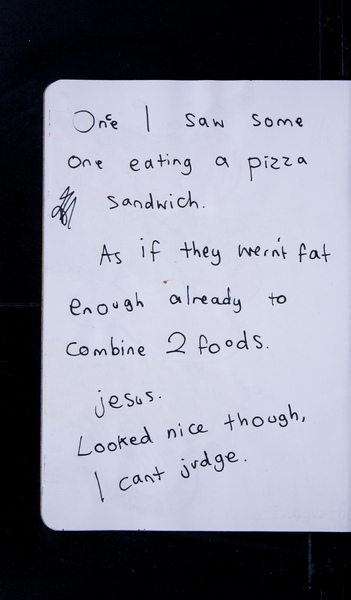 Once I saw some
one eating a pizza
sandwich.
As if they wern't fat
enough already to
combine 2 foods.
jesus.
Looked nice though,
I cant judge.